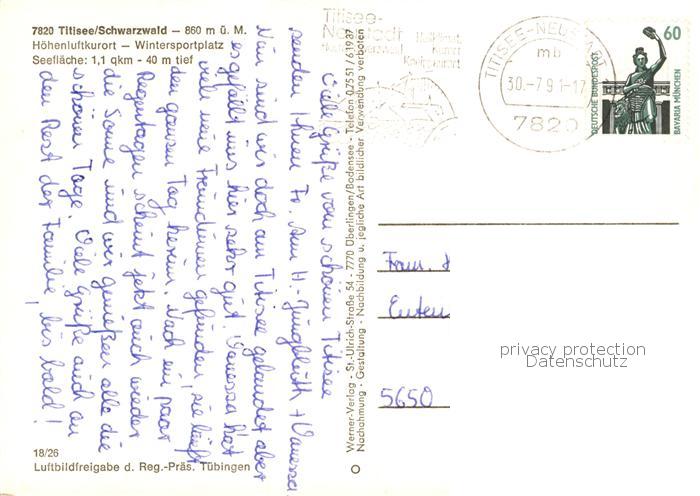 7820 Titisee/Schwarzwald – 860 m ü. M.
Höhenluftkurort – Wintersportplatz
Seefläche: 1,1 qkm - 40 m tief
Viele Grüße vom schönen Titisee
senden Ihnen Fr. Ann H. Jungbluth + Vanessa
Nun sind wir doch am Titisee gelandet aber
es gefällt uns hier sehr gut. Vanessa hat
viele neue Freundinnen gefunden, sie läuft
den ganzen Tag herum. Nach ein paar
Regentagen scheint jetzt auch wieder
die Sonne und wir genießen alle die
schönen Tage. Viele Grüße auch an
den Rest der Familie, bis bald!
18/26
Luftbildfreigabe d. Reg.-Präs. Tübingen
Werner-Verlag - St.-Ulrich-Straße 54 - 7770 Überlingen/Bodensee - Telefon 07551/61987
Nachahmung - Gestaltung - Nachbildung u. jegliche Art bildlicher Verwendung verboten
Titisee-
Neustadt
Heilklimat.
Kurort
Kneippkurort
TITISEE-NEUSTADT
mb
30.-7.91-17
7820
60
DEUTSCHE BUNDESPOST
BAVARIA MÜNCHEN
Fam.
5650
privacy protection
Datenschutz